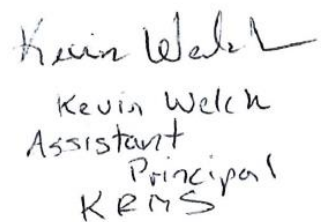 Kevin Welch
Kevin Welch
Assistant
Principal
KRMS